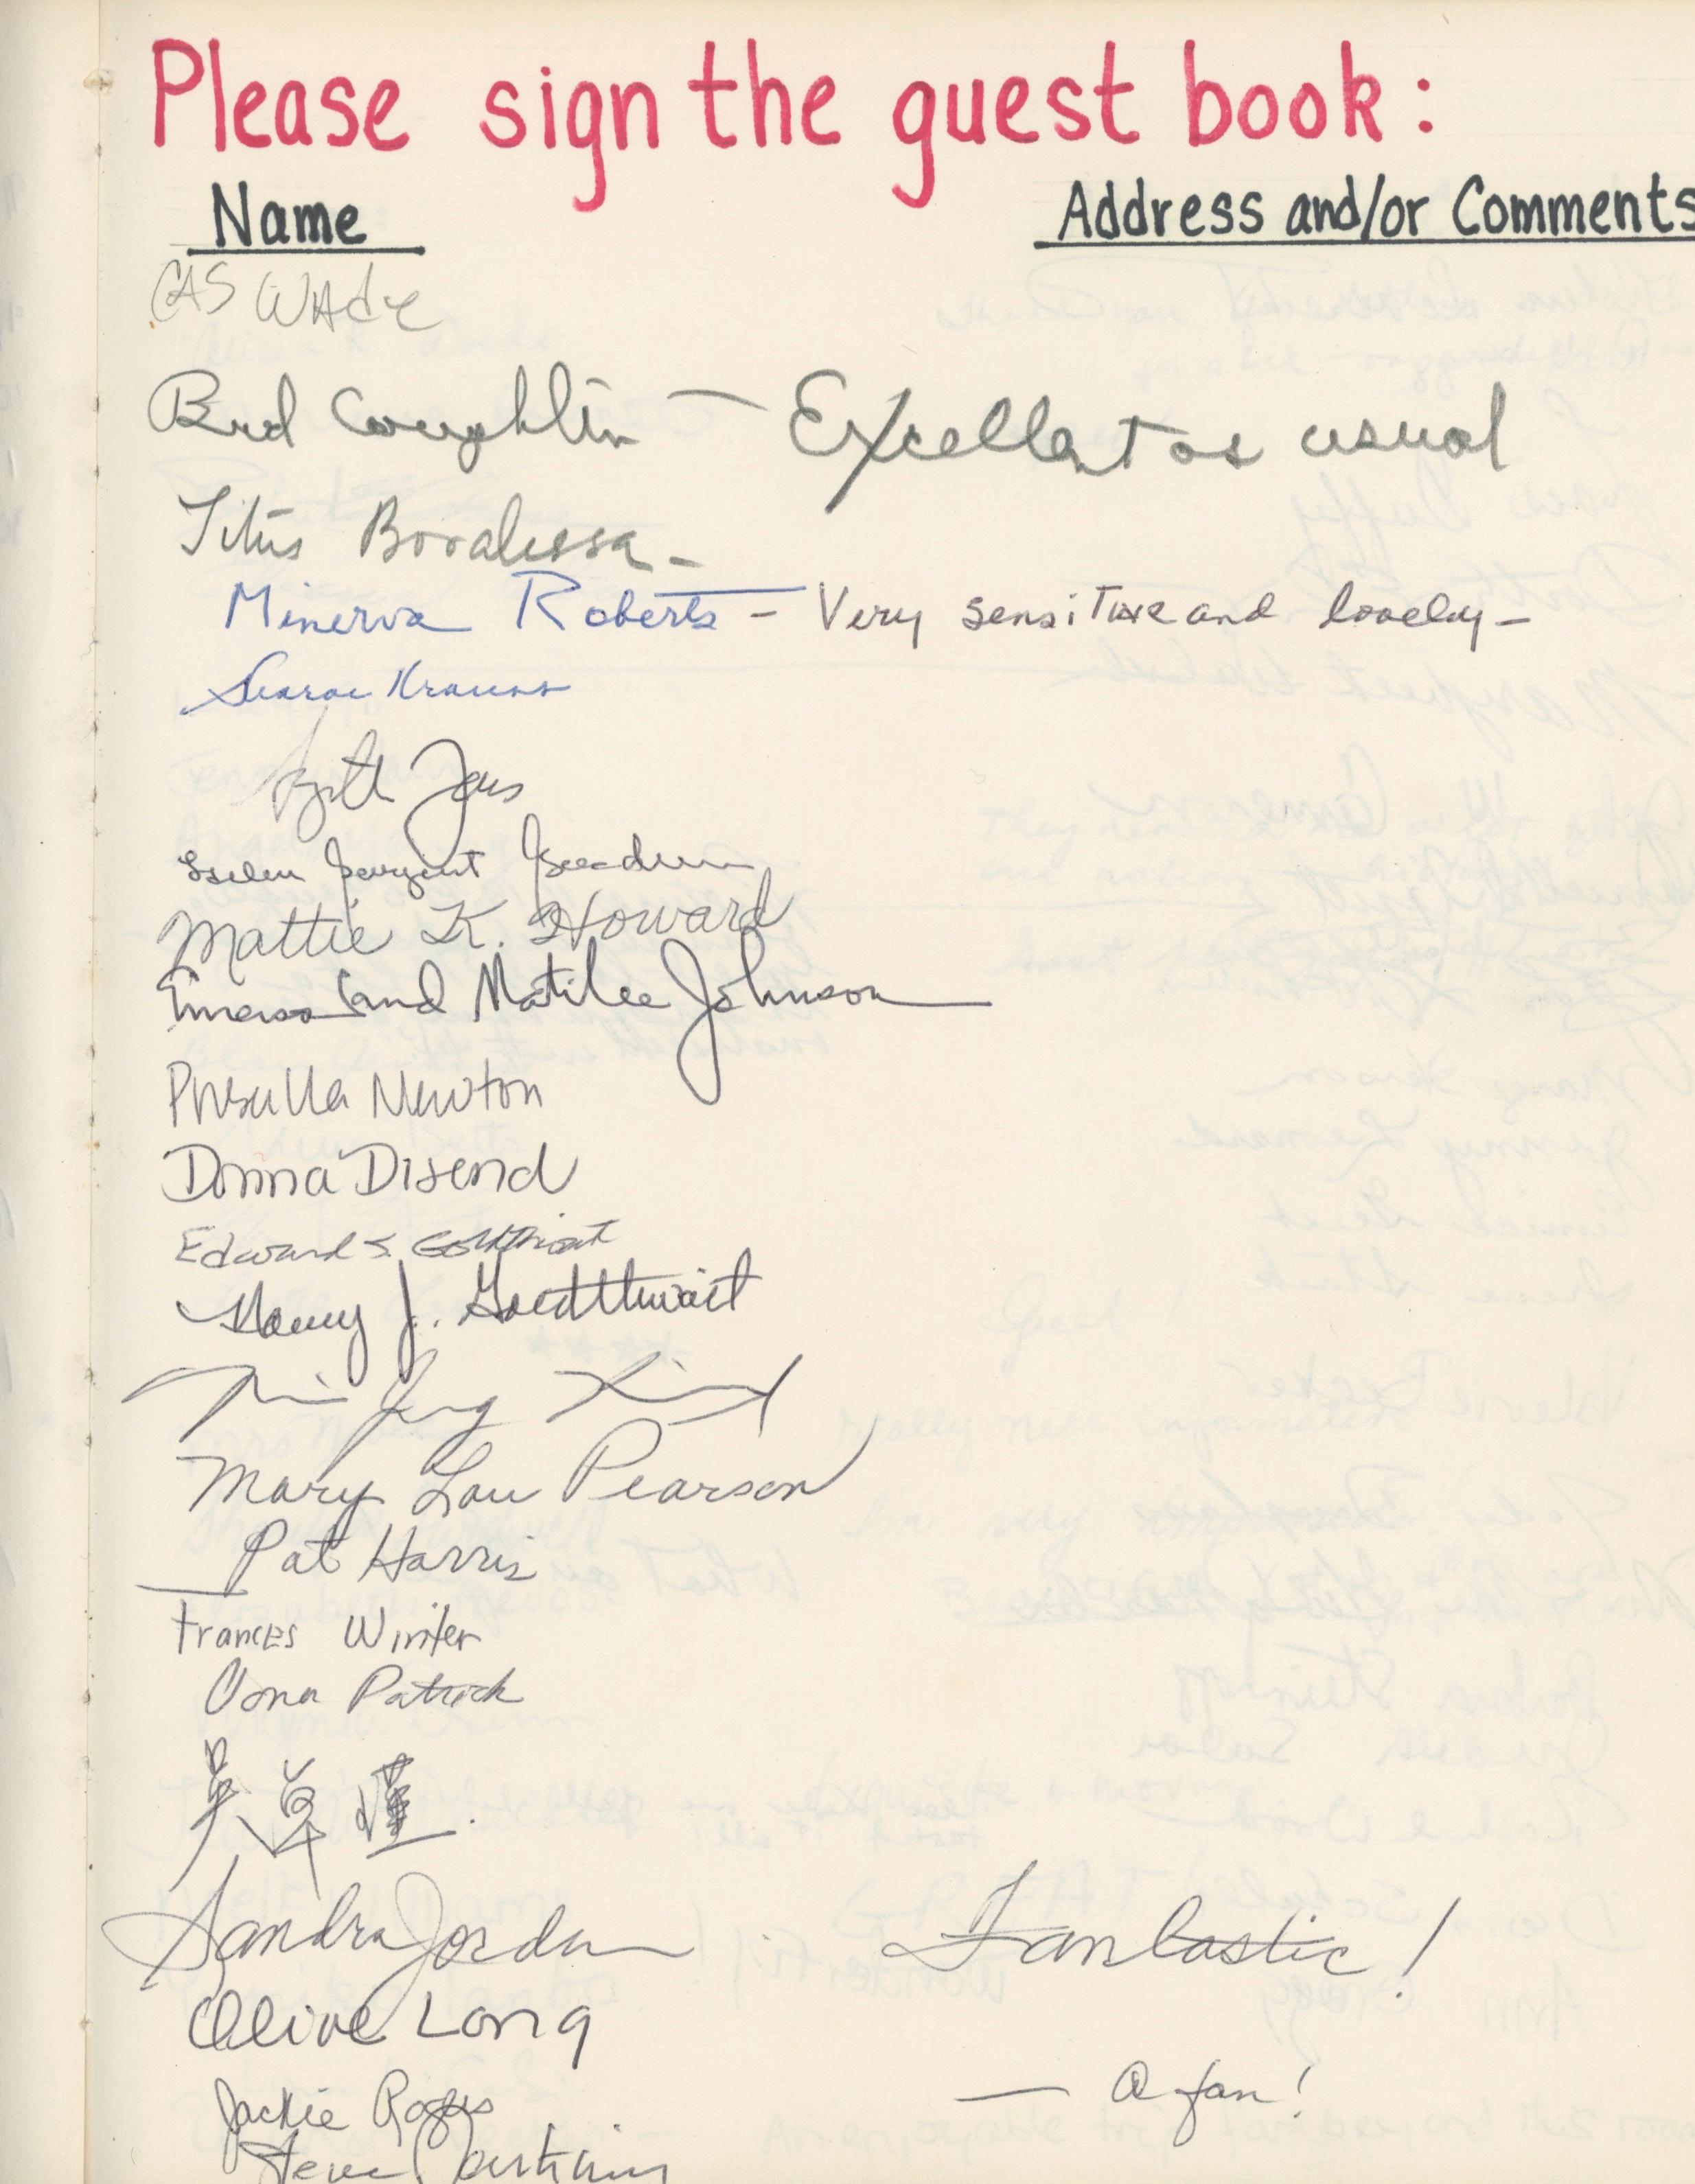 Please sign the guest book:
Name Address and/or Comments
CAS Wade
Bud Coughlin — Excellent as usual
Titus
Minerva Roberts - Very sensitive and lovely -
Krauss
Helen Sargent
Mattie K. Howard
Emerson and Matilee Johnson
Priscilla Newton
Donna Disend
Edward S. Goldthwait
Nancy J. Goldthwait
Mary Lou Pearson
Pat Harris
Frances Winter
Oona Patrick
Sandra Jordan Fantastic!
Olive Long
Jackie Rogers — A fan!
Steve